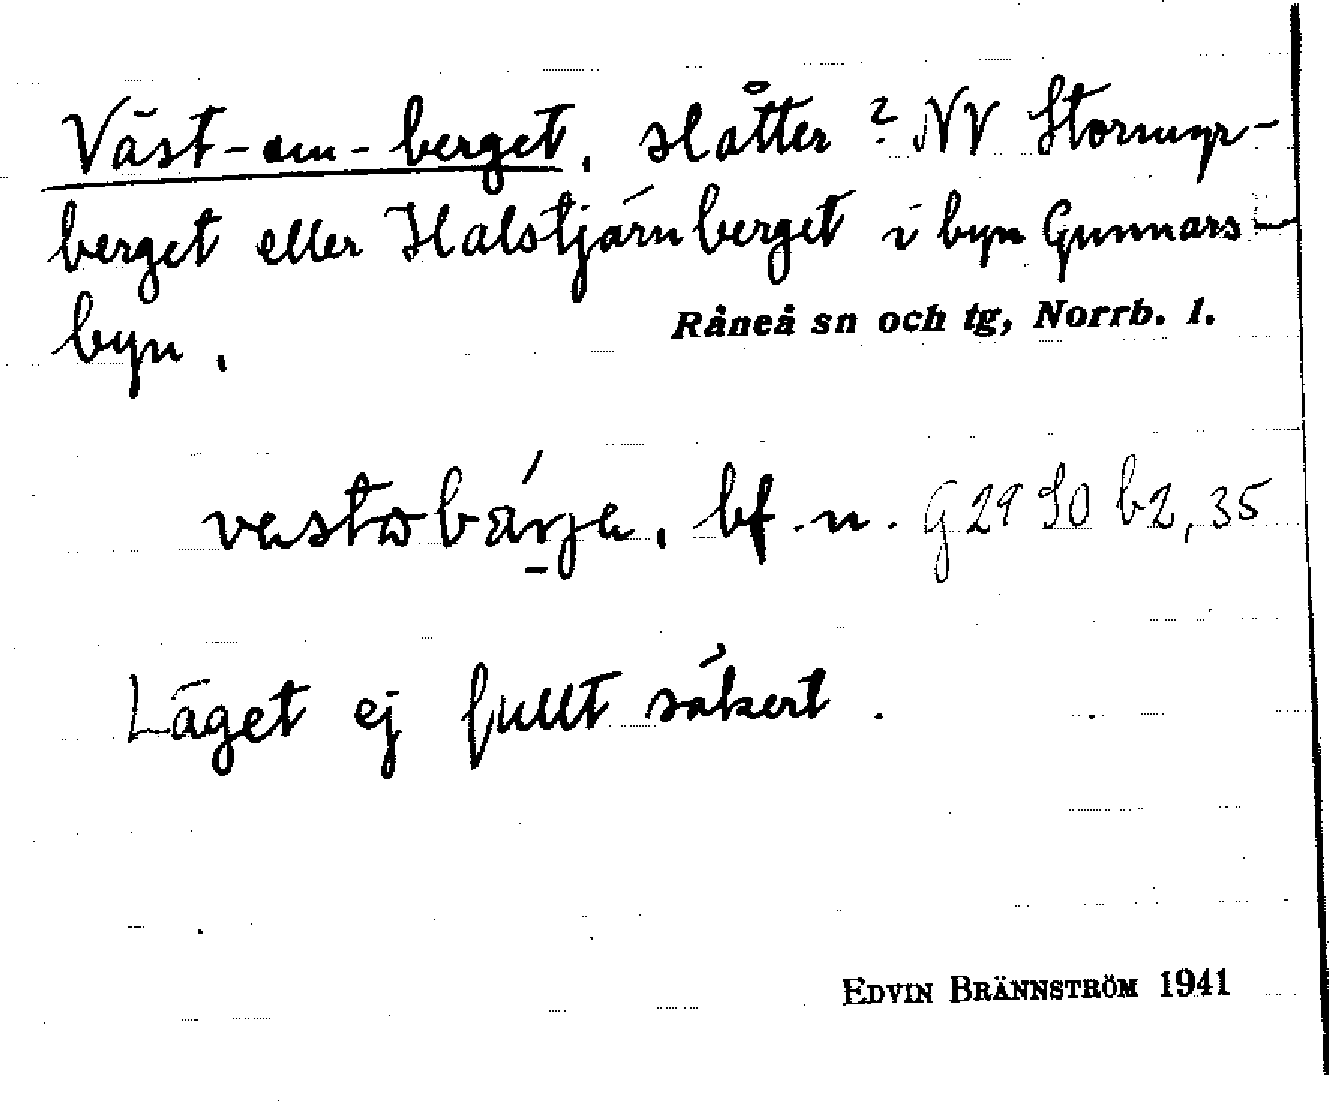 Väst-om-berget, slåtter ? NV Stormyr-
berget eller Halstjärnberget i byn Gunnars-
byn.
Råneå sn och tg, Norrb. l.
bf.n. G 29 SO b2,35
Läget ej fullt säkert.
EDVIN BRÄNNSTRÖM 1941